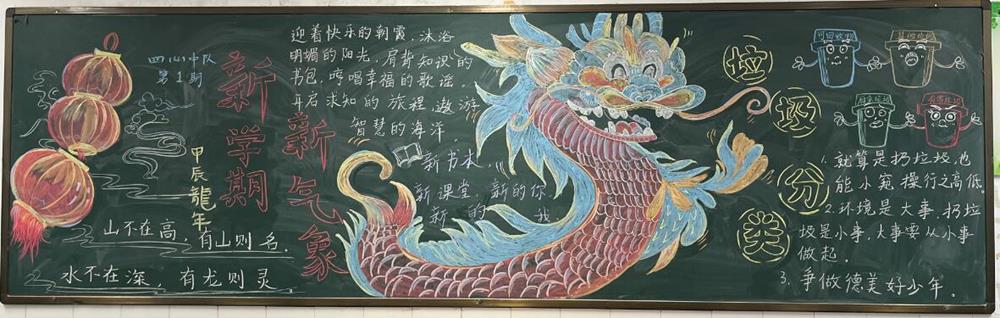 四(4)中队
第1期
新学期
新气象
甲辰龍年
山不在高,有山则名.
水不在深,有龙则灵
迎着快乐的朝霞,沐浴
明媚的阳光,肩背知识的
书包,哼唱幸福的歌谣,
开启求知的旅程遨游
智慧的海洋
新书本
新课堂 新的你
新的我
垃圾分类
可回收物
其他垃圾
厨余垃圾
有害垃圾
1.就算是扔垃圾,也
能小窥操行之高低.
2.环境是大事,扔垃
圾是小事,大事要从小事
做起.
3.争做德美好少年.